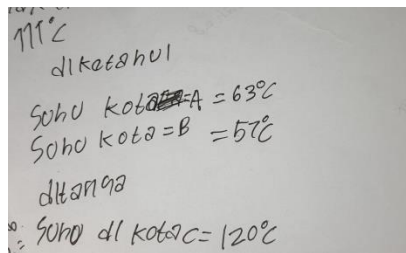 111°C
diketahui
Sohu kota A = 63°C
Sohu kota = B = 57°C
ditanga
= Sohu di kota C = 120°C